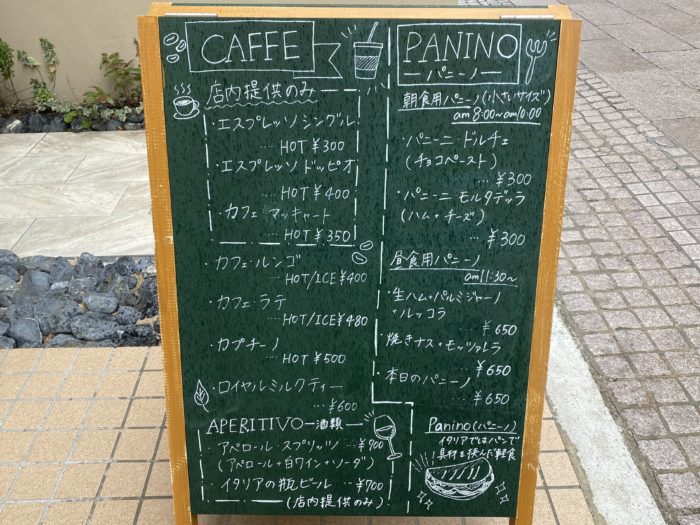 CAFFE
店内提供のみ
・エスプレッソ シングル
… HOT ¥300
・エスプレッソ ドッピオ
… HOT ¥400
・カフェ マッキャート
… HOT ¥350
・カフェ・ルンゴ
… HOT/ICE ¥400
・カフェ・ラテ
… HOT/ICE ¥480
・カプチーノ
… HOT ¥500
・ロイヤルミルクティー
… ¥600
APERITIVO ー酒類ー
・アペロール スプリッツ … ¥700
(アペロール+白ワイン+ソーダ)
・イタリアの瓶ビール … ¥700
(店内提供のみ)
PANINO
ーパニーノー
朝食用パニーノ(小さいサイズ)
am8:00~am10:00
・パニーニ ドルチェ
(チョコペースト)
… ¥300
・パニーニ モルタデッラ
(ハム+チーズ)
… ¥300
昼食用パニーノ
am11:30~
・生ハム+パルミジャーノ
+ルッコラ
… ¥650
・焼きナス+モッツァレラ
… ¥650
・本日のパニーノ
… ¥650
Panino(パニーノ)
イタリアではパンで
具材を挟んだ軽食